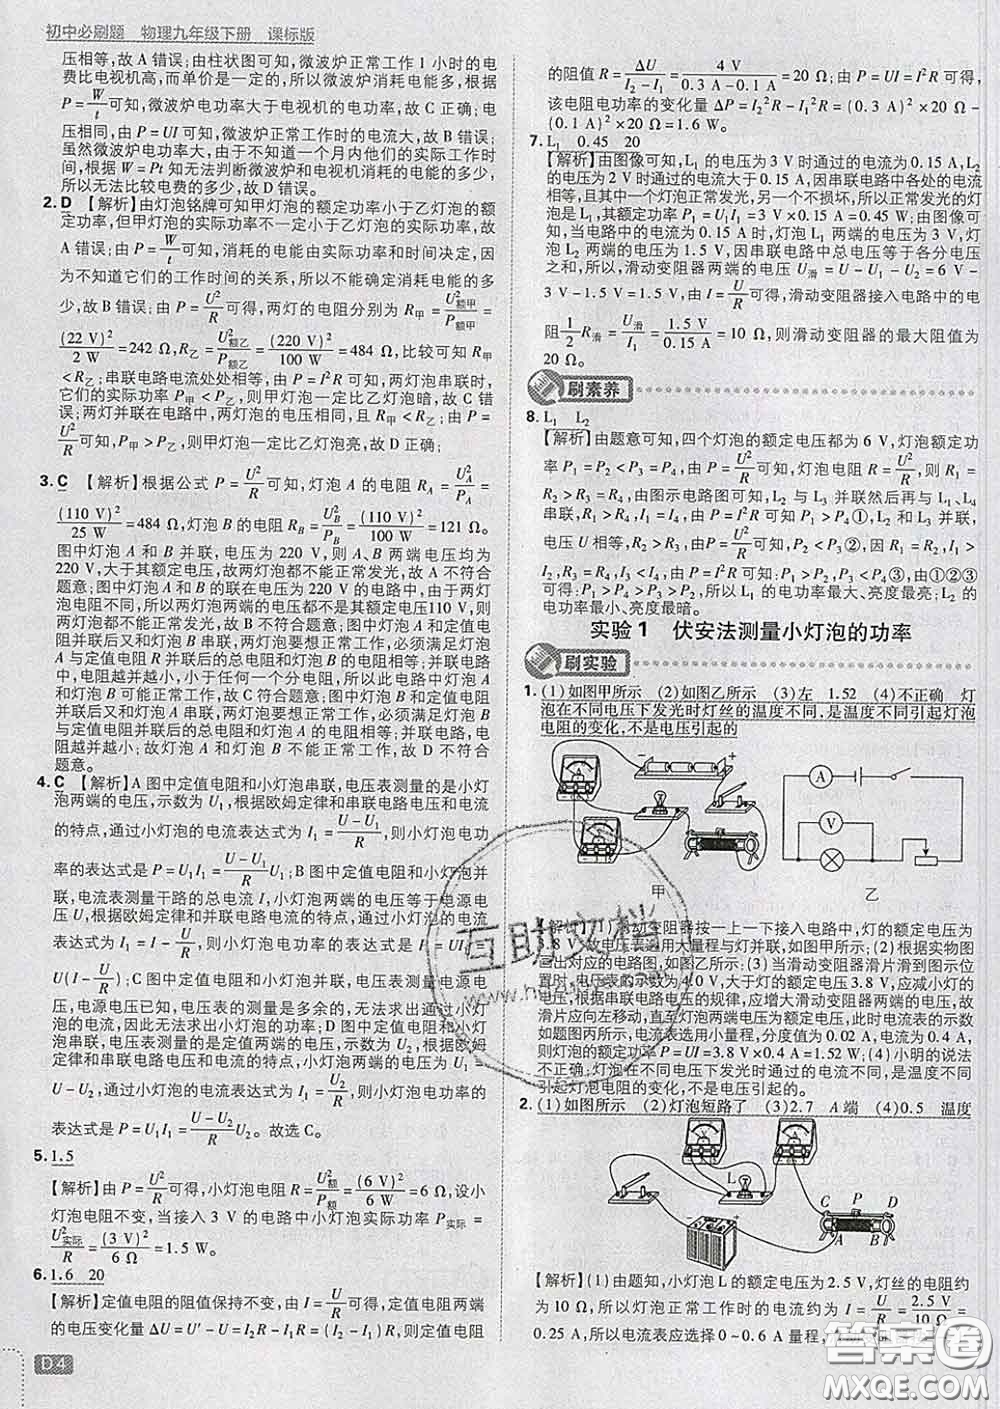 初中必刷题 物理九年级下册 课标版
压相等,故 A 错误;由柱状图可知,微波炉正常工作 1 小时的电
费比电视机高,而单价是一定的,所以微波炉消耗电能多,根据
P=W/t可知,微波炉电功率大于电视机的电功率,故 C 正确;电
压相同,由 P=UI 可知,微波炉正常工作时的电流大,故 B 错误;
虽然微波炉电功率大,但不知道一个月内他们的实际工作时
间,根据 W=Pt 知无法判断微波炉和电视机消耗电能的多少,
所以无法比较电费的多少,故 D 错误。
2. D 【解析】由灯泡铭牌可知甲灯泡的额定功率小于乙灯泡的额
定功率,但甲灯泡的实际功率不一定小于乙灯泡的实际功率,故
A 错误;由 P=W/t可知,消耗的电能由实际功率和时间决定,因
为不知道它们的工作时间的关系,所以不能确定消耗电能的多
少,故 B 错误;由 P=U²/R可得,两灯的电阻分别为 R甲=U²额甲/P额甲=
(22 V)²/2 W=242 Ω,R乙=U²额乙/P额乙=(220 V)²/100 W=484 Ω,比较可知 R甲
<R乙;串联电路电流处处相等,由 P=I²R 可知,两灯泡串联时,
它们的实际功率 P甲<P乙,则甲灯泡一定比乙灯泡暗,故 C 错
误;两灯并联在电路中,两灯泡的电压相同,且 R甲<R乙,由 P=
U²/R可知,P甲>P乙,则甲灯泡一定比乙灯泡亮,故 D 正确;
3. C 【解析】根据公式 P=U²/R可知,灯泡 A 的电阻 RA=U²A/PA=
(110 V)²/25 W=484 Ω,灯泡 B 的电阻 RB=U²B/PB=(110 V)²/100 W=121 Ω。
图中灯泡 A 和 B 并联,电压为 220 V,则 A、B 两端电压均为
220 V,大于其额定电压,故两灯泡都不能正常发光,故 A 不符合
题意;图中灯泡 A 和 B 的联在电压为 220 V 的电路中,由于两灯
泡电阻不同,所以两灯泡两端的电压都不是其额定电压110 V,则
两灯都不能正常发光,故 B 不符合题意;图中灯泡 A 和定值电阻
并联后又和灯泡 B 串联,两灯泡要想正常工作,必须满足灯泡
A 与定值电阻 R 并联后的总电阻和灯泡 B 的相同,而并联电
阻电阻越并越小,小于任何一个分电阻,所以此时灯泡 A 和灯
泡 B 可能正常工作,故 C 符合题意;图中灯泡 B 和定值电阻
并联后又和灯泡 A 串联,两灯泡要想正常工作,必须满足灯泡 B
与定值电阻并联后的总电阻和灯泡 A 的电阻相同,而并联电
阻越并越小;故两灯泡不可能正常工作,故 D 不符合题意。
4. C 【解析】A 图中定值电阻和小灯泡串联,电压表测量的是小灯
泡两端的电压,示数为 U₁,根据欧姆定律和串联电路电压和电流
的特点,通过小灯泡的电流表达式为 I₁=(U-U₁)/R,则小灯泡电功
率的表达式是 P=U₁I₁=(U-U₁)/R U₁;B 图中定值电阻和小灯泡并
联,电流表测量干路的总电流 I,小灯泡两端的电压等于电源电
压 U,根据欧姆定律和并联电路电流的特点,通过小灯泡的电流
表达式为 I₁=I-U/R,则小灯泡电功率的表达式是 P=UI₁=
U(I-U/R);C 图中定值电阻和小灯泡并联,电压表测量电源电
压,电源电压已知,电压表的测量是多余的,无法求出小灯
泡的电流,因此无法求出小灯泡的功率;D 图中定值电阻和小灯
泡串联,电压表测量的是定值电阻两端的电压,示数为 U₂,根据欧姆
定律和串联电路电压和电流的特点,小灯泡两端的电压为 U₁=
U-U₂,通过小灯泡的电流表达式为 I₁=U₂/R,则小灯泡电功率的
表达式是 P=U₁I₁=(U-U₂)/R U₂。故选 C。
5. 1.5
【解析】由 P=U²/R可得,小灯泡电阻 R=U²额/P额=(6 V)²/6 W=6 Ω,设小
灯泡电阻不变,当接入 3 V 的电路中小灯泡实际功率 P实际=
U²实际/R=(3 V)²/6 Ω=1.5 W。
6. 1.6 20
【解析】定值电阻的阻值保持不变,由 I=U/R可得,定值电阻两端
的电压变化量 ΔU=U′-U=I₂R-I₁R=(I₂-I₁)R,则定值电阻
D 4
的阻值 R=ΔU/(I₂-I₁)=4 V/(0.3 A-0.1 A)=20 Ω;由 P=UI=I²R 可得,
该电阻电功率的变化量 ΔP=I₂²R-I₁²R=(0.3 A)²×20 Ω-
(0.1 A)²×20 Ω=1.6 W。
7. L₁ 0.45 20
【解析】由图像可知,L₁ 的电压为 3 V 时通过的电流为 0.15 A,L₂
的电压为 2 V 时通过的电流大于 0.15 A,因串联电路中各处的电流
相等,且其中一个灯泡正常发光,另一个不损坏,所以正常发光的灯
泡是 L₁,其额定功率 P₁=U₁I₁=3 V×0.15 A=0.45 W;由图像可
知,当电路中的电流为 0.15 A 时,灯泡 L₁ 两端的电压为 3 V,灯
泡 L₂ 两端的电压为 1.5 V,因串联电路中总电压等于各分电压
之和,所以,滑动变阻器两端的电压 U滑=U-U₁-U₂=6 V-
3 V-1.5 V=1.5 V,由 I=U/R可得,滑动变阻器接入电路中的电
阻1/2R滑=U滑/I=1.5 V/0.15 A=10 Ω,则滑动变阻器的最大阻值为
20 Ω。
刷素养
8. L₁ L₂
【解析】由题意可知,四个灯泡的额定电压都为 6 V,灯泡额定功
率 P₁=P₂<P₃=P₄,由 P=U²/R可得,R=U²/P,则 R₁=
R₂>R₃=R₄,由图示电路图可知,L₂ 与 L₃ 并联然后再与 L₁、L₄
串联,R₁>R₄,I₁=I₄,由 P=I²R 可知 P₁>P₄①,L₂ 和 L₃ 并联,
电压 U 相等,R₂>R₃,由 P=U²/R可知,P₂<P₃②,因 I₁>
I₃,R₄=R₃,I₄>I₃,由 P=I²R 可知:P₁>P₂,P₄>P₃③;由①②③
可得:P₁>P₄>P₃>P₂,所以 L₁ 的电功率最大、亮度最亮;L₂ 的
电功率最小、亮度最暗。
实验 1 伏安法测量小灯泡的功率
刷实验
1. (1)如图甲所示 (2)如图乙所示 (3)左 1.52 (4)不正确 灯
泡在不同电压下发光时灯丝的温度不同,是温度不同引起灯泡
电阻的变化,不是电压引起的
甲
乙
【解析】(1)滑动变阻器按一上一下接入电路中,灯的额定电压为
3.8 V,故电压表选用大量程与灯并联,如图甲所示;(2)根据实物图
画出对应的电路图,如图乙所示;(3)当滑动变阻器滑片滑到图示
位置时,电压表示数为4.0 V,大于灯的额定电压 3.8 V,应减小灯的
电压,根据串联电路电压的规律,应增大滑动变阻器两端的电压,故
滑片应向左移动,直至灯泡两端电压为额定电压,此时电流表的示数
如题图丙所示,电流表选用小量程,分度值为 0.02 A,电流为 0.4 A,
则灯泡的额定功率 P=UI=3.8 V×0.4 A=1.52 W;(4)小明的说法
不正确。灯泡在不同电压下发光时灯丝的温度不同,是温度不同
引起灯泡电阻的变化,不是电压引起的。
2. (1)如图所示 (2)灯泡短路了 (3)2.7 A 端 (4)0.5 温度
L
C P D
A B
【解析】(1)由题知,小灯泡 L 的额定电压为 2.5 V,灯丝的电阻约
为 10 Ω,所以灯泡正常工作时的电流约为 I=U/R=2.5 V/10 Ω=
0.25 A,所以电流表应选择 0~0.6 A 量程,
互助文档
答案圈
MXQE.COM